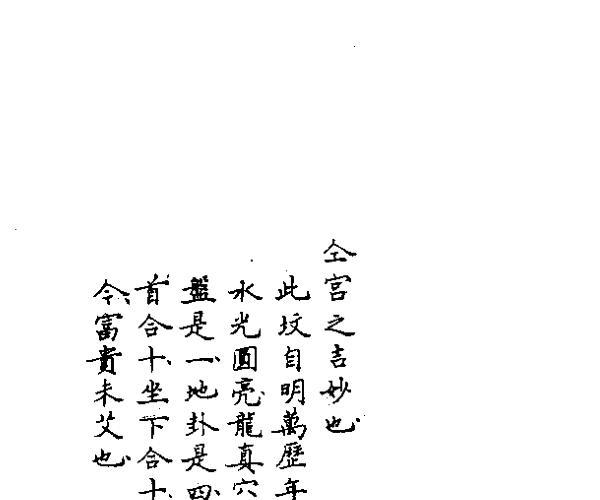 仝宮之吉妙也
此坟自明萬歷年
水光圓亮龍真穴
盤是一地卦是四
首合十坐下合十
今富貴未艾也